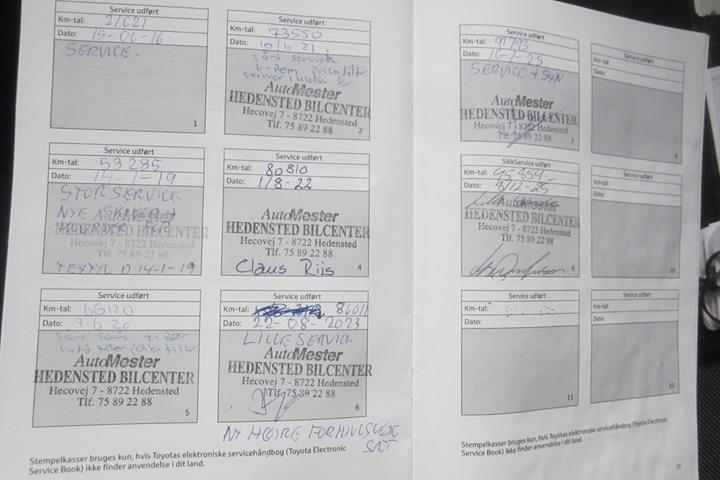 Service udført
Km-tal: 21621
Dato: 15-06-16
SERVICE.
1
Service udført
Km-tal: 73550
Dato: 10/6-21
års service
AutoMester
HEDENSTED BILCENTER
Hecovej 7 - 8722 Hedensted
Tlf. 75 89 22 88
2
Service udført
Km-tal: 53285
Dato: 14-1-19
STOR SERVICE
NYE
AutoMester
HEDENSTED BILCENTER
Hecovej 7 - 8722 Hedensted
14-1-19
3
Service udført
Km-tal: 80810
Dato: 1/8-22
AutoMester
HEDENSTED BILCENTER
Hecovej 7 - 8722 Hedensted
Tlf. 75 89 22 88
Claus Riis
4
Service udført
Km-tal: 66120
Dato: 9-6-20
AutoMester
HEDENSTED BILCENTER
Hecovej 7 - 8722 Hedensted
Tlf. 75 89 22 88
5
Service udført
Km-tal: 86011
Dato: 22-08-2023
LILLE SERVICE
AutoMester
HEDENSTED BILCENTER
Hecovej 7 - 8722 Hedensted
Tlf. 75 89 22 88
6
NY HØJRE
Stempelkasser bruges kun, hvis Toyotas elektroniske servicehåndbog (Toyota Electronic
Service Book) ikke finder anvendelse i dit land.
Service udført
Km-tal: 91793
Dato: 16-1-25
SERVICE + SYN
AutoMester
HEDENSTED BILCENTER
Hecovej 7 - 8722 Hedensted
Tlf. 75 89 22 88
7
Service udført
Km-tal:
Dato:
8
SikkService udført
Km-tal: 95854
Dato: 8/12-25
AutoMester
HEDENSTED BILCENTER
Hecovej 7 - 8722 Hedensted
Tlf. 75 89 22 88
9
Service udført
Km-tal:
Dato:
10
Service udført
Km-tal:
Dato:
11
Service udført
Km-tal:
Dato:
12
Stempelkasser bruges kun, hvis Toyotas elektroniske servicehåndbog (Toyota Electronic
Service Book) ikke finder anvendelse i dit land.